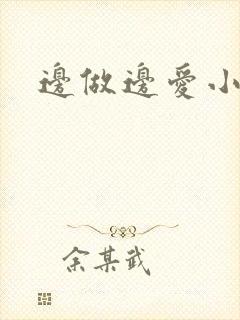 邊做邊愛小
余某武